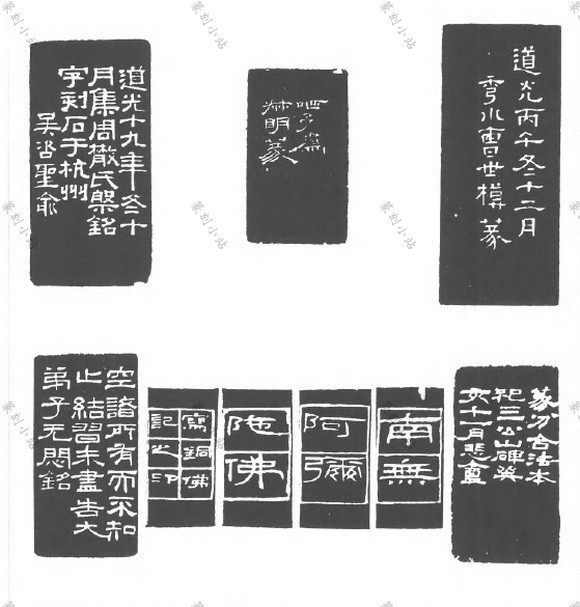 道光丙午冬十二月
雩小曹世模篆
篆
道光十九年冬十
月集周散氏槃銘
字刻石于杭州
吴咨聖俞
篆刻小站
南無
阿彌
陀佛
寫銅佛
記之印
空諸所有而不知
止結習未盡告大
弟子无悶銘
篆分合法本
祀三公山碑